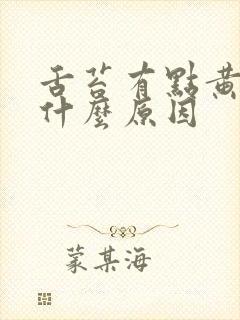 舌苔有點黃
什麼原因
蒙某海